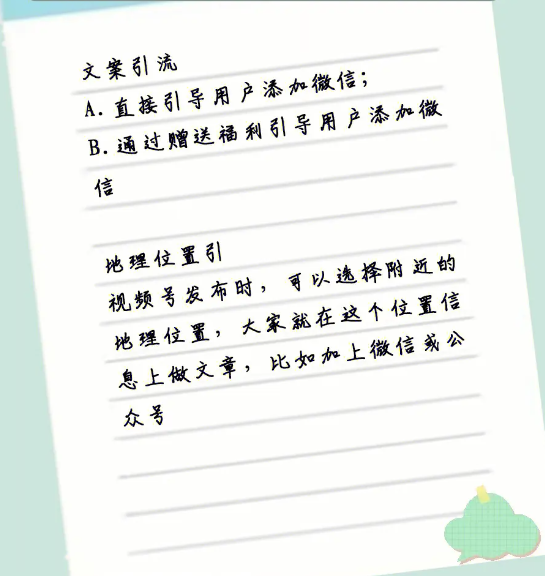 文案引流
A.直接引导用户添加微信；
B.通过赠送福利引导用户添加微
信
地理位置引
视频号发布时，可以选择附近的
地理位置，大家就在这个位置信
息上做文章，比如加上微信或公
众号